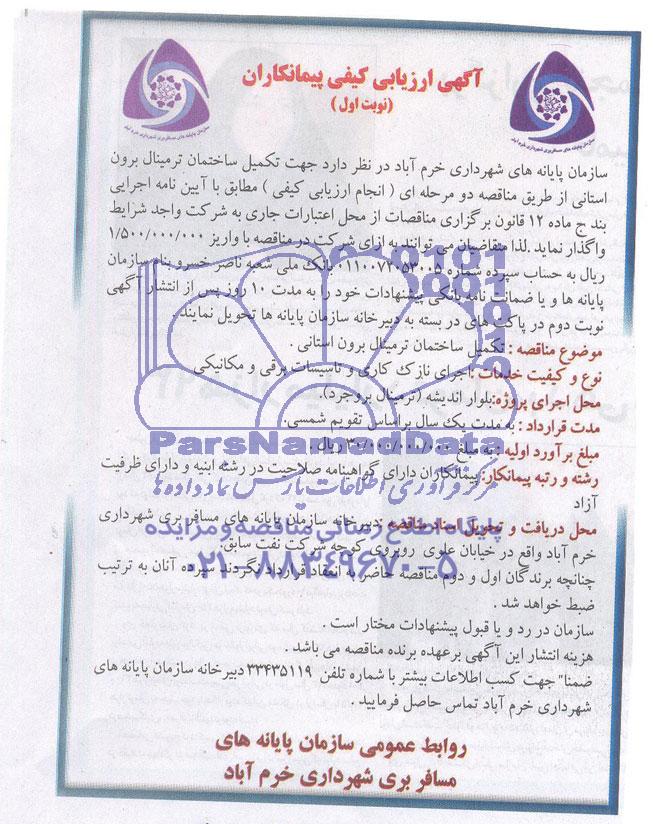 آگهی ارزیابی کیفی پیمانکاران
(نوبت اول)
سازمان پایانه های مسافربری شهرداری خرم آباد
سازمان پایانه های مسافربری شهرداری خرم آباد
سازمان پایانه های شهرداری خرم آباد در نظر دارد جهت تکمیل ساختمان ترمینال برون
استانی از طریق مناقصه دو مرحله ای ( انجام ارزیابی کیفی ) مطابق با آیین نامه اجرایی
بند ج ماده ۱۲ قانون برگزاری مناقصات از محل اعتبارات جاری به شرکت واجد شرایط
واگذار نماید .لذا متقاضیان می توانند به ازای شرکت در مناقصه با واریز ۱/۵۰۰/۰۰۰/۰۰۰
ریال به حساب سپرده شماره بانک ملی شعبه ناصر خسرو بنام سازمان
پایانه ها و یا ضمانت نامه بانکی پیشنهادات خود را به مدت ۱۰ روز پس از انتشار آگهی
نوبت دوم در پاکت های در بسته به دبیرخانه سازمان پایانه ها تحویل نمایند
موضوع مناقصه : تکمیل ساختمان ترمینال برون استانی .
نوع و کیفیت خدمات : اجرای نازک کاری و تاسیسات برقی و مکانیکی
محل اجرای پروژه:بلوار اندیشه (ترمینال بروجرد).
مدت قرارداد : به مدت یک سال براساس تقویم شمسی.
مبلغ برآورد اولیه : به مبلغ ریال
رشته و رتبه پیمانکار: پیمانکاران دارای گواهینامه صلاحیت در رشته ابنیه و دارای ظرفیت
آزاد
محل دریافت و تحویل اسناد مناقصه : دبیرخانه سازمان پایانه های مسافر بری شهرداری
خرم آباد واقع در خیابان علوی روبروی کوچه شرکت نفت سابق.
چنانچه برندگان اول و دوم مناقصه حاضر به انعقاد قرارداد نگردند سپرده آنان به ترتیب
ضبط خواهد شد .
سازمان در رد و یا قبول پیشنهادات مختار است .
هزینه انتشار این آگهی برعهده برنده مناقصه می باشد .
ضمنا" جهت کسب اطلاعات بیشتر با شماره تلفن ۳۳۴۳۵۱۱۹ دبیرخانه سازمان پایانه های
شهرداری خرم آباد تماس حاصل فرمایید .
روابط عمومی سازمان پایانه های
مسافر بری شهرداری خرم آباد
ParsNamadData
مرکز فرآوری اطلاعات پارس نماد داده ها
پایگاه اطلاع رسانی مناقصه و مزایده
۰۲۱-۸۸۳۴۹۶۷۰-۵